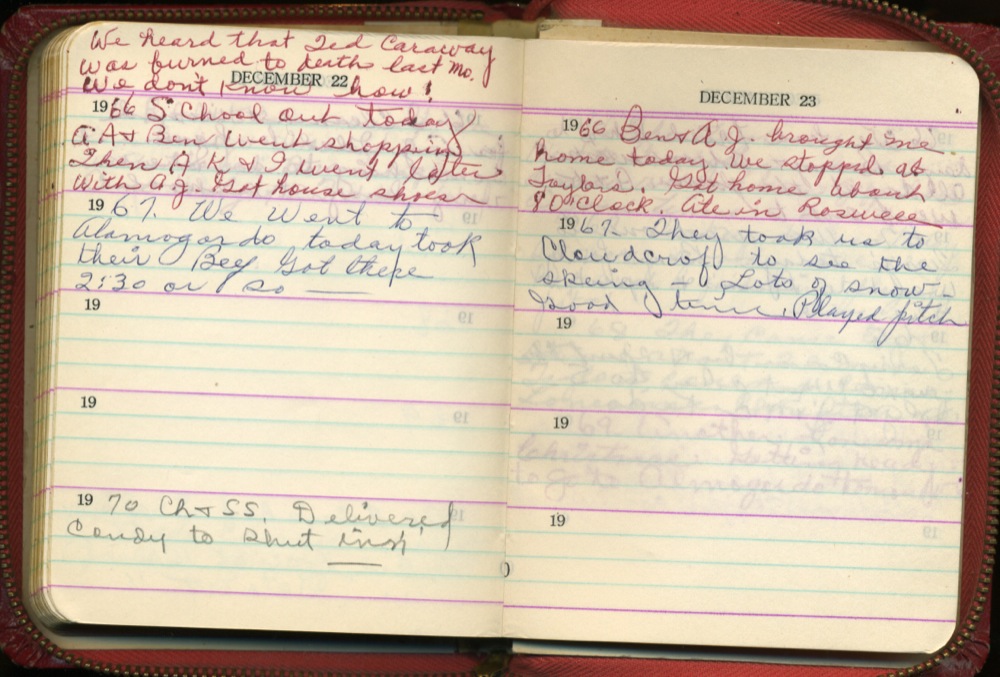 We heard that Ted Caraway
was burned to death last Mo.
DECEMBER 22
We don't know how!
1966 S'Chool out today
A A & Ben went shopping
Then A K & I went later
with A J. Got house shoes
1967. We went to
Alamogordo today took
their Bed Got there
2:30 or so —
19
19
1970 Ch & SS. Delivered
Candy to shut ins
DECEMBER 23
1966 Ben & A J. brought me
home today we stopped at
Taylors. Got home about
8 O'Clock. Ate in Roswell
1967. They took us to
Cloudcroft to see the
skeing – Lots of snow –
good time. Played pitch
19
19
19